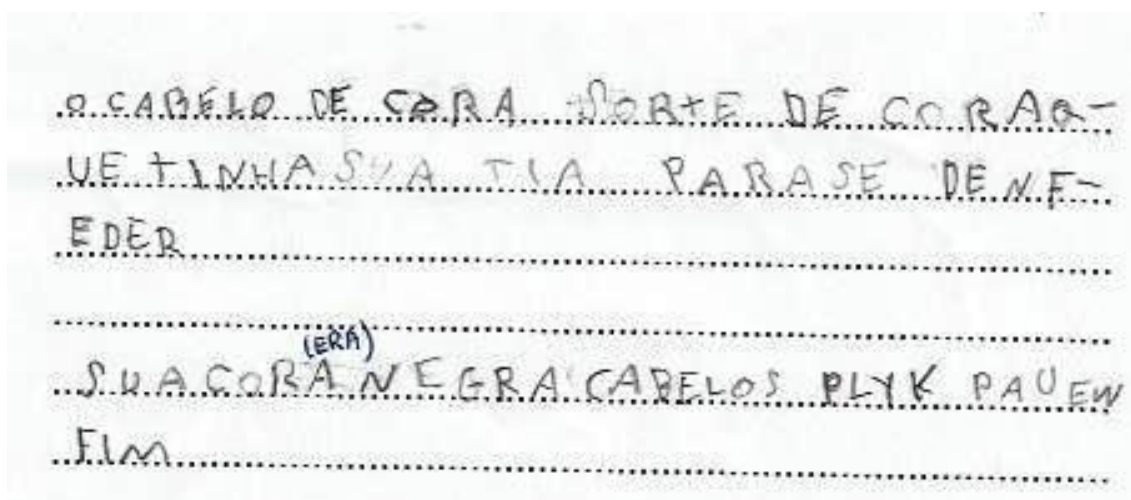 O CABELO DE CORA SORTE DE CORAQ-
UE TINHA SUA TIA PARA SE DENF-
EDER
(ERA)
SUA CORA NEGRA CABELOS PLYK PAUEN
FIM